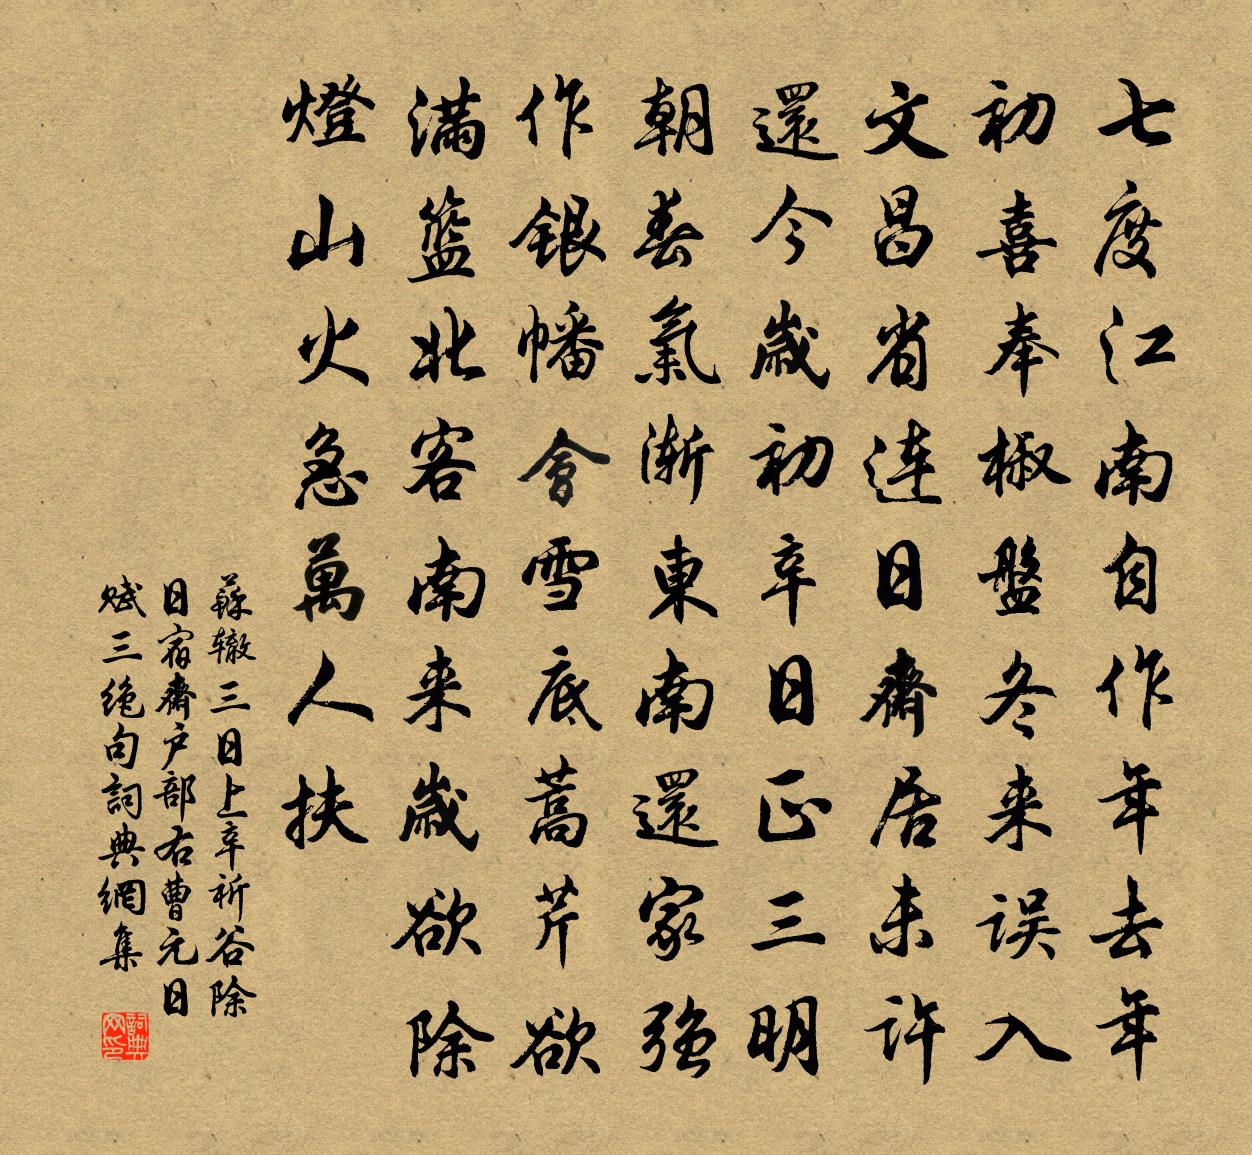 七度江南自作年去年
初喜奉椒盤冬来误入
文昌省连日齋居未许
還今歲初辛日正三明
朝春氣渐東南還家强
作銀幡會雪底蒿芹欲
满籃北客南来歲欲除
燈山火急萬人扶
蘇辙三日上辛祈谷除
日宿齋户部右曹元日
赋三绝句詞典網集
詞典网印